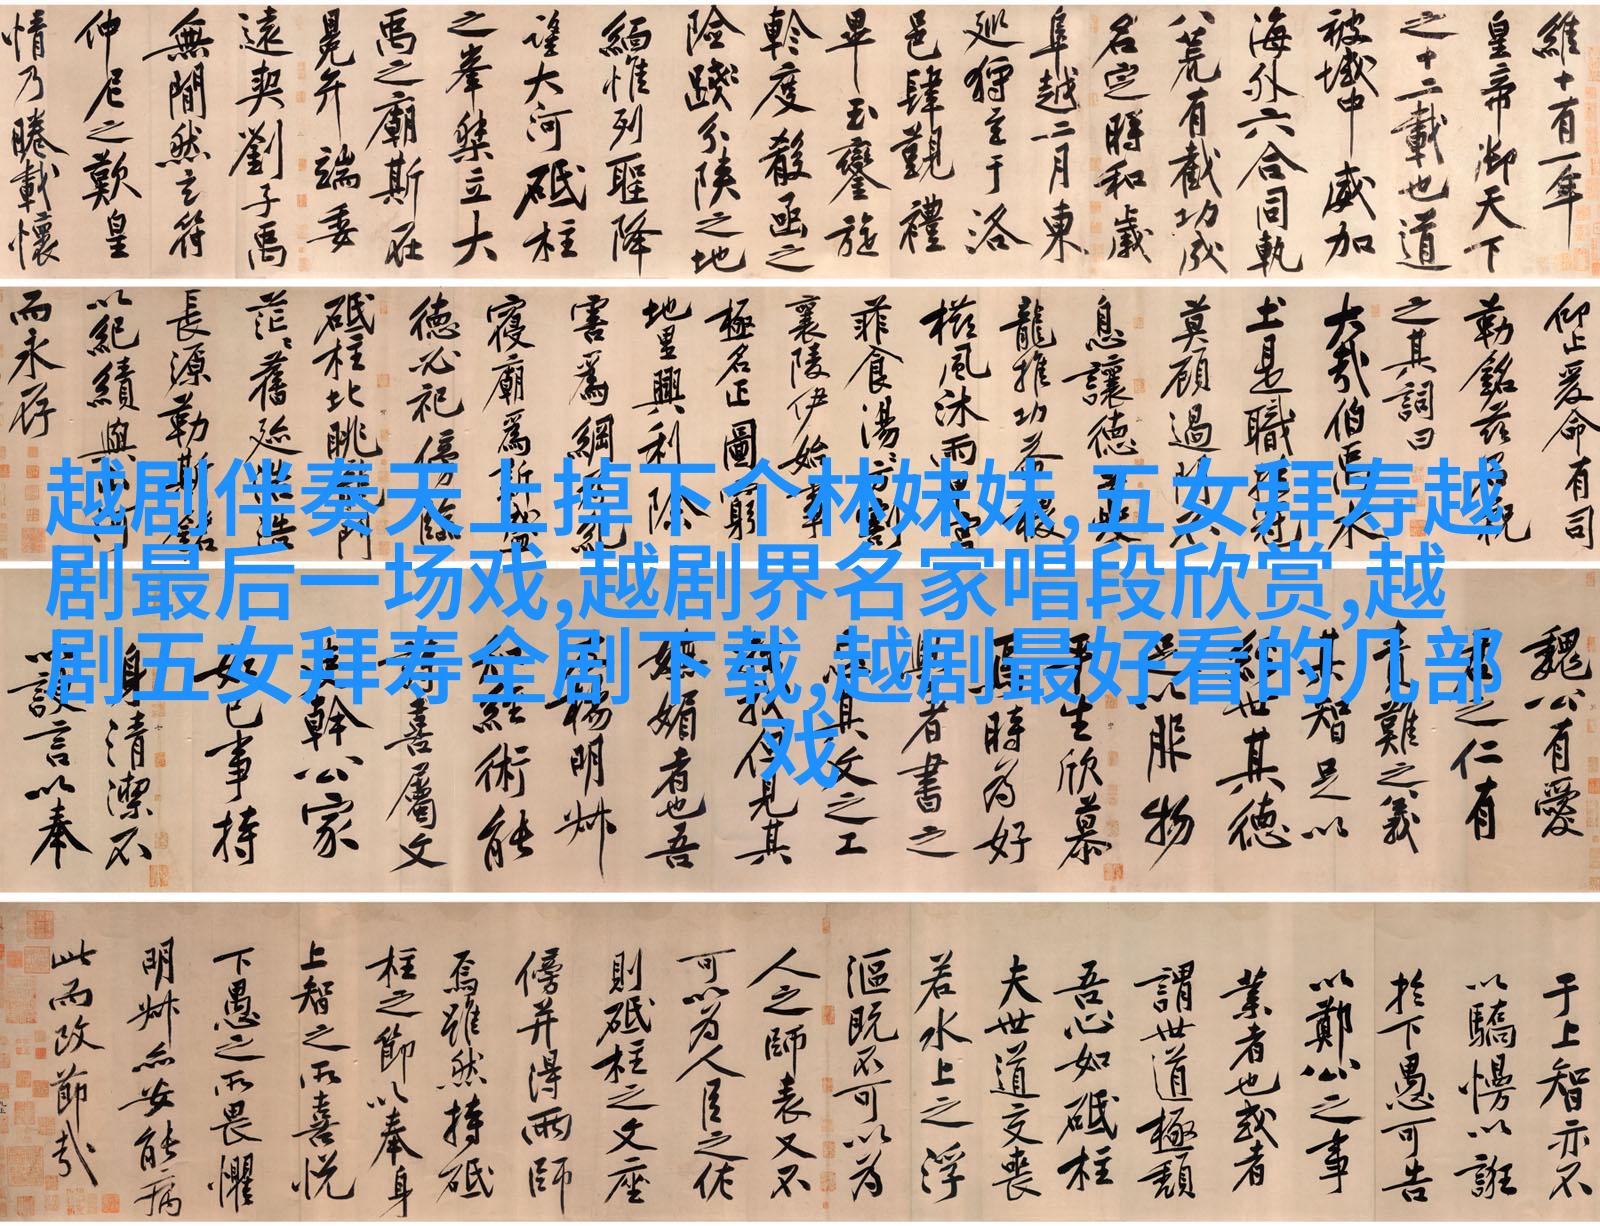 維十有一年
皇帝御天下
之十二載也道
被域中威加
海外六合同軌
八荒有截功成
名定時和歲
阜越二月東
巡狩至于洛
邑肆覲禮
畢玉鑾旋
軫度殽函之
險踐分陝之地
緬惟列聖降
望大河砥柱
之峯桀立大
禹之廟斯在
晃弁端委
遠契劉子禹
無閒然玄符
仲尼之歎皇
情乃睠載懷
仰止爰命有司
勒銘茲
之其詞曰
大哉伯禹水
土是職
莫顧過門不
息讓德
龍推功益稷
櫛風沐雨
菲食湯湯方割
襄陵伊始事
極名正圖窮
地里興利除
害爲綱爲紀
寢廟爲新盛
德必祀傍臨
砥柱北眺門
茫茫舊迹浩
長源勒斯銘
以紀績與山河
而永存
越剧伴奏天上掉下个林妹妹,五女拜寿越
剧最后一场戏,越剧界名家唱段欣赏,越
剧五女拜寿全剧下载,越剧最好看的几部
戏
魏公有愛
君之仁有
責難之義
其智足以
經世其德
足以服物
平生欣慕
焉時為好
學者書之
忘其文之工
我但見其
嫵媚者也吾
友楊明叔
知經術能
詩喜屬文
吏幹公家
如己事持
身清潔不
以諛言以奉
于上智亦不
以驕慢以誑
於下愚可告
以鄭公之事
業者也或者
謂世道極頹
吾心如砥柱
夫世道交喪
若水上之浮
漚既不可以為
人之師表又不
可以為人臣之佐
則砥柱之文座
傍并得兩師
焉雖然持砥
柱之節以奉身
上智之所喜悅
下愚之所畏懼
明叔亦安能病
此而改節哉